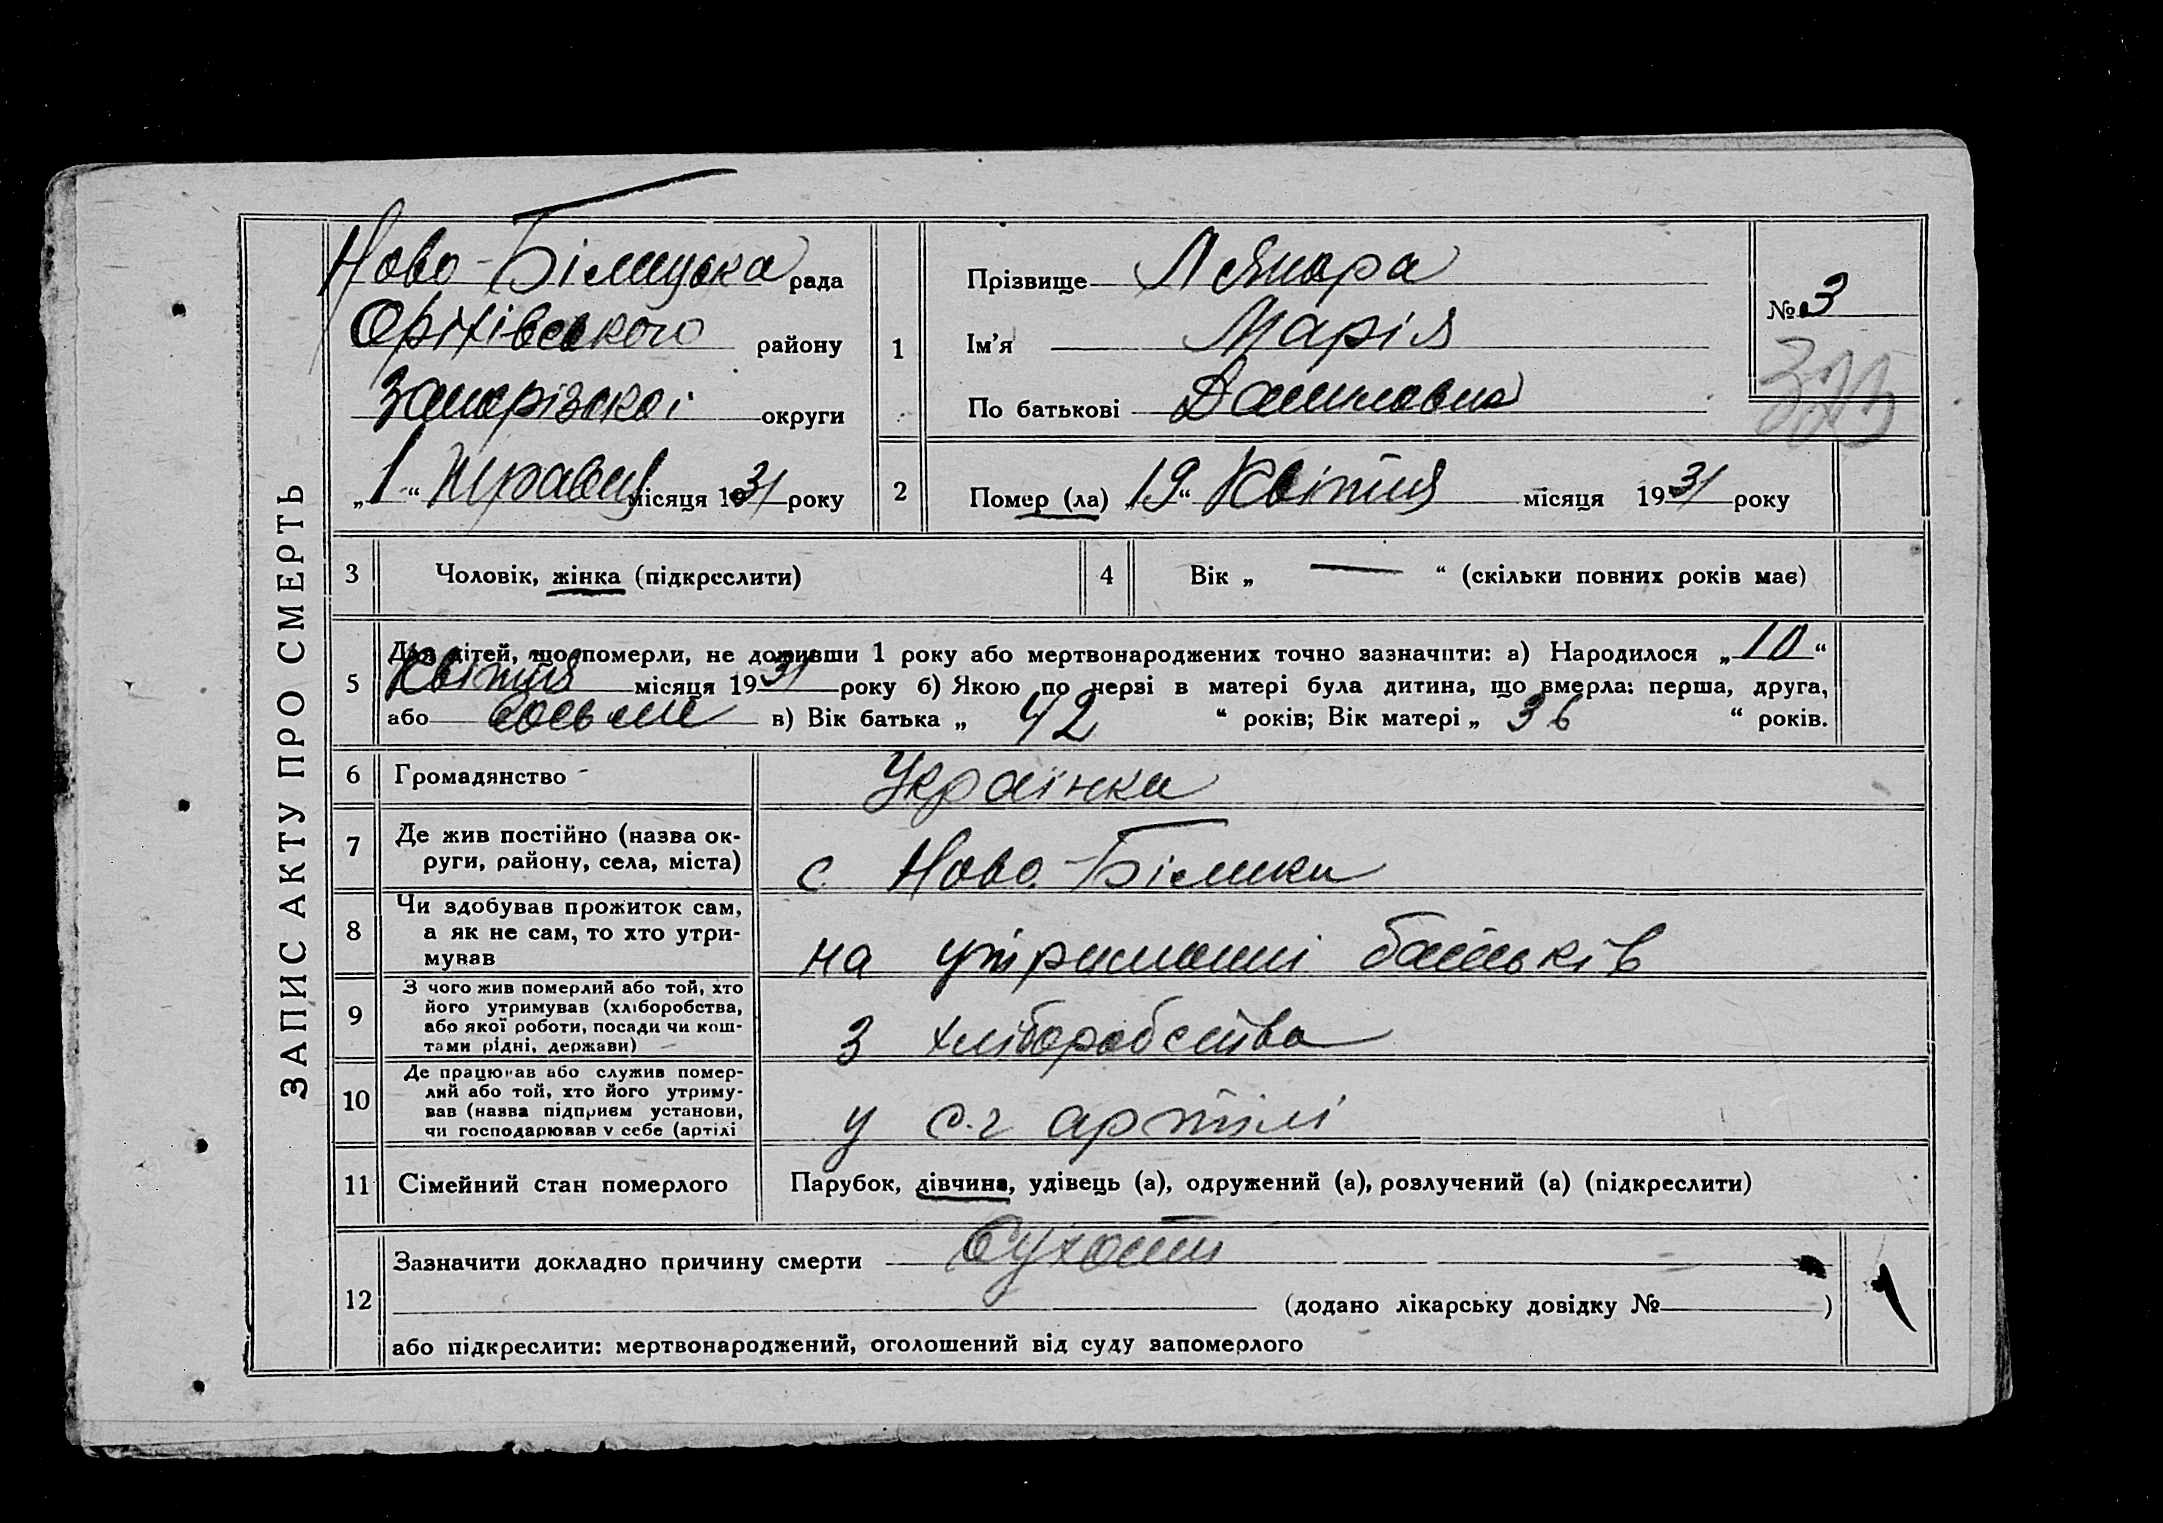 ЗАПИС АКТУ ПРО СМЕРТЬ
Ново-Білицька рада
Оріхівського району
Запорізскоі округи
„1“ Травня місяця 1931 року
1
Прізвище
Ім'я Марія
По батькові Даниловна
№ 3
2
Помер (ла) „19“ Квітня місяця 1931 року
3
Чоловік, жінка (підкреслити)
4
Вік „ — “ (скільки повних років має)
5
Для дітей, що померли, не доживши 1 року або мертвонароджених точно зазначити: а) Народилося „10“
Квітня місяця 1931 року б) Якою по черзі в матері була дитина, що вмерла: перша, друга,
або в) Вік батька „ 42 “ років; Вік матері „ 36 “ років.
6
Громадянство Українка
7
Де жив постійно (назва ок-
руги, району, села, міста)
с. Ново-
8
Чи здобував прожиток сам,
а як не сам, то хто утри-
мував
на утриманні батьків
9
З чого жив померлий або той, хто
його утримував (хліборобства,
або якої роботи, посади чи кош-
тами рідні, держави)
З хліборобства
10
Де працював або служив помер-
лий або той, хто його утриму-
вав (назва підприєм установи,
чи господарював у себе (артілі
у с.г артілі
11
Сімейний стан померлого
Парубок, дівчина, удівець (а), одружений (а), розлучений (а) (підкреслити)
12
Зазначити докладно причину смерти Сухоти
(додано лікарську довідку № )
або підкреслити: мертвонароджений, оголошений від суду запомерлого